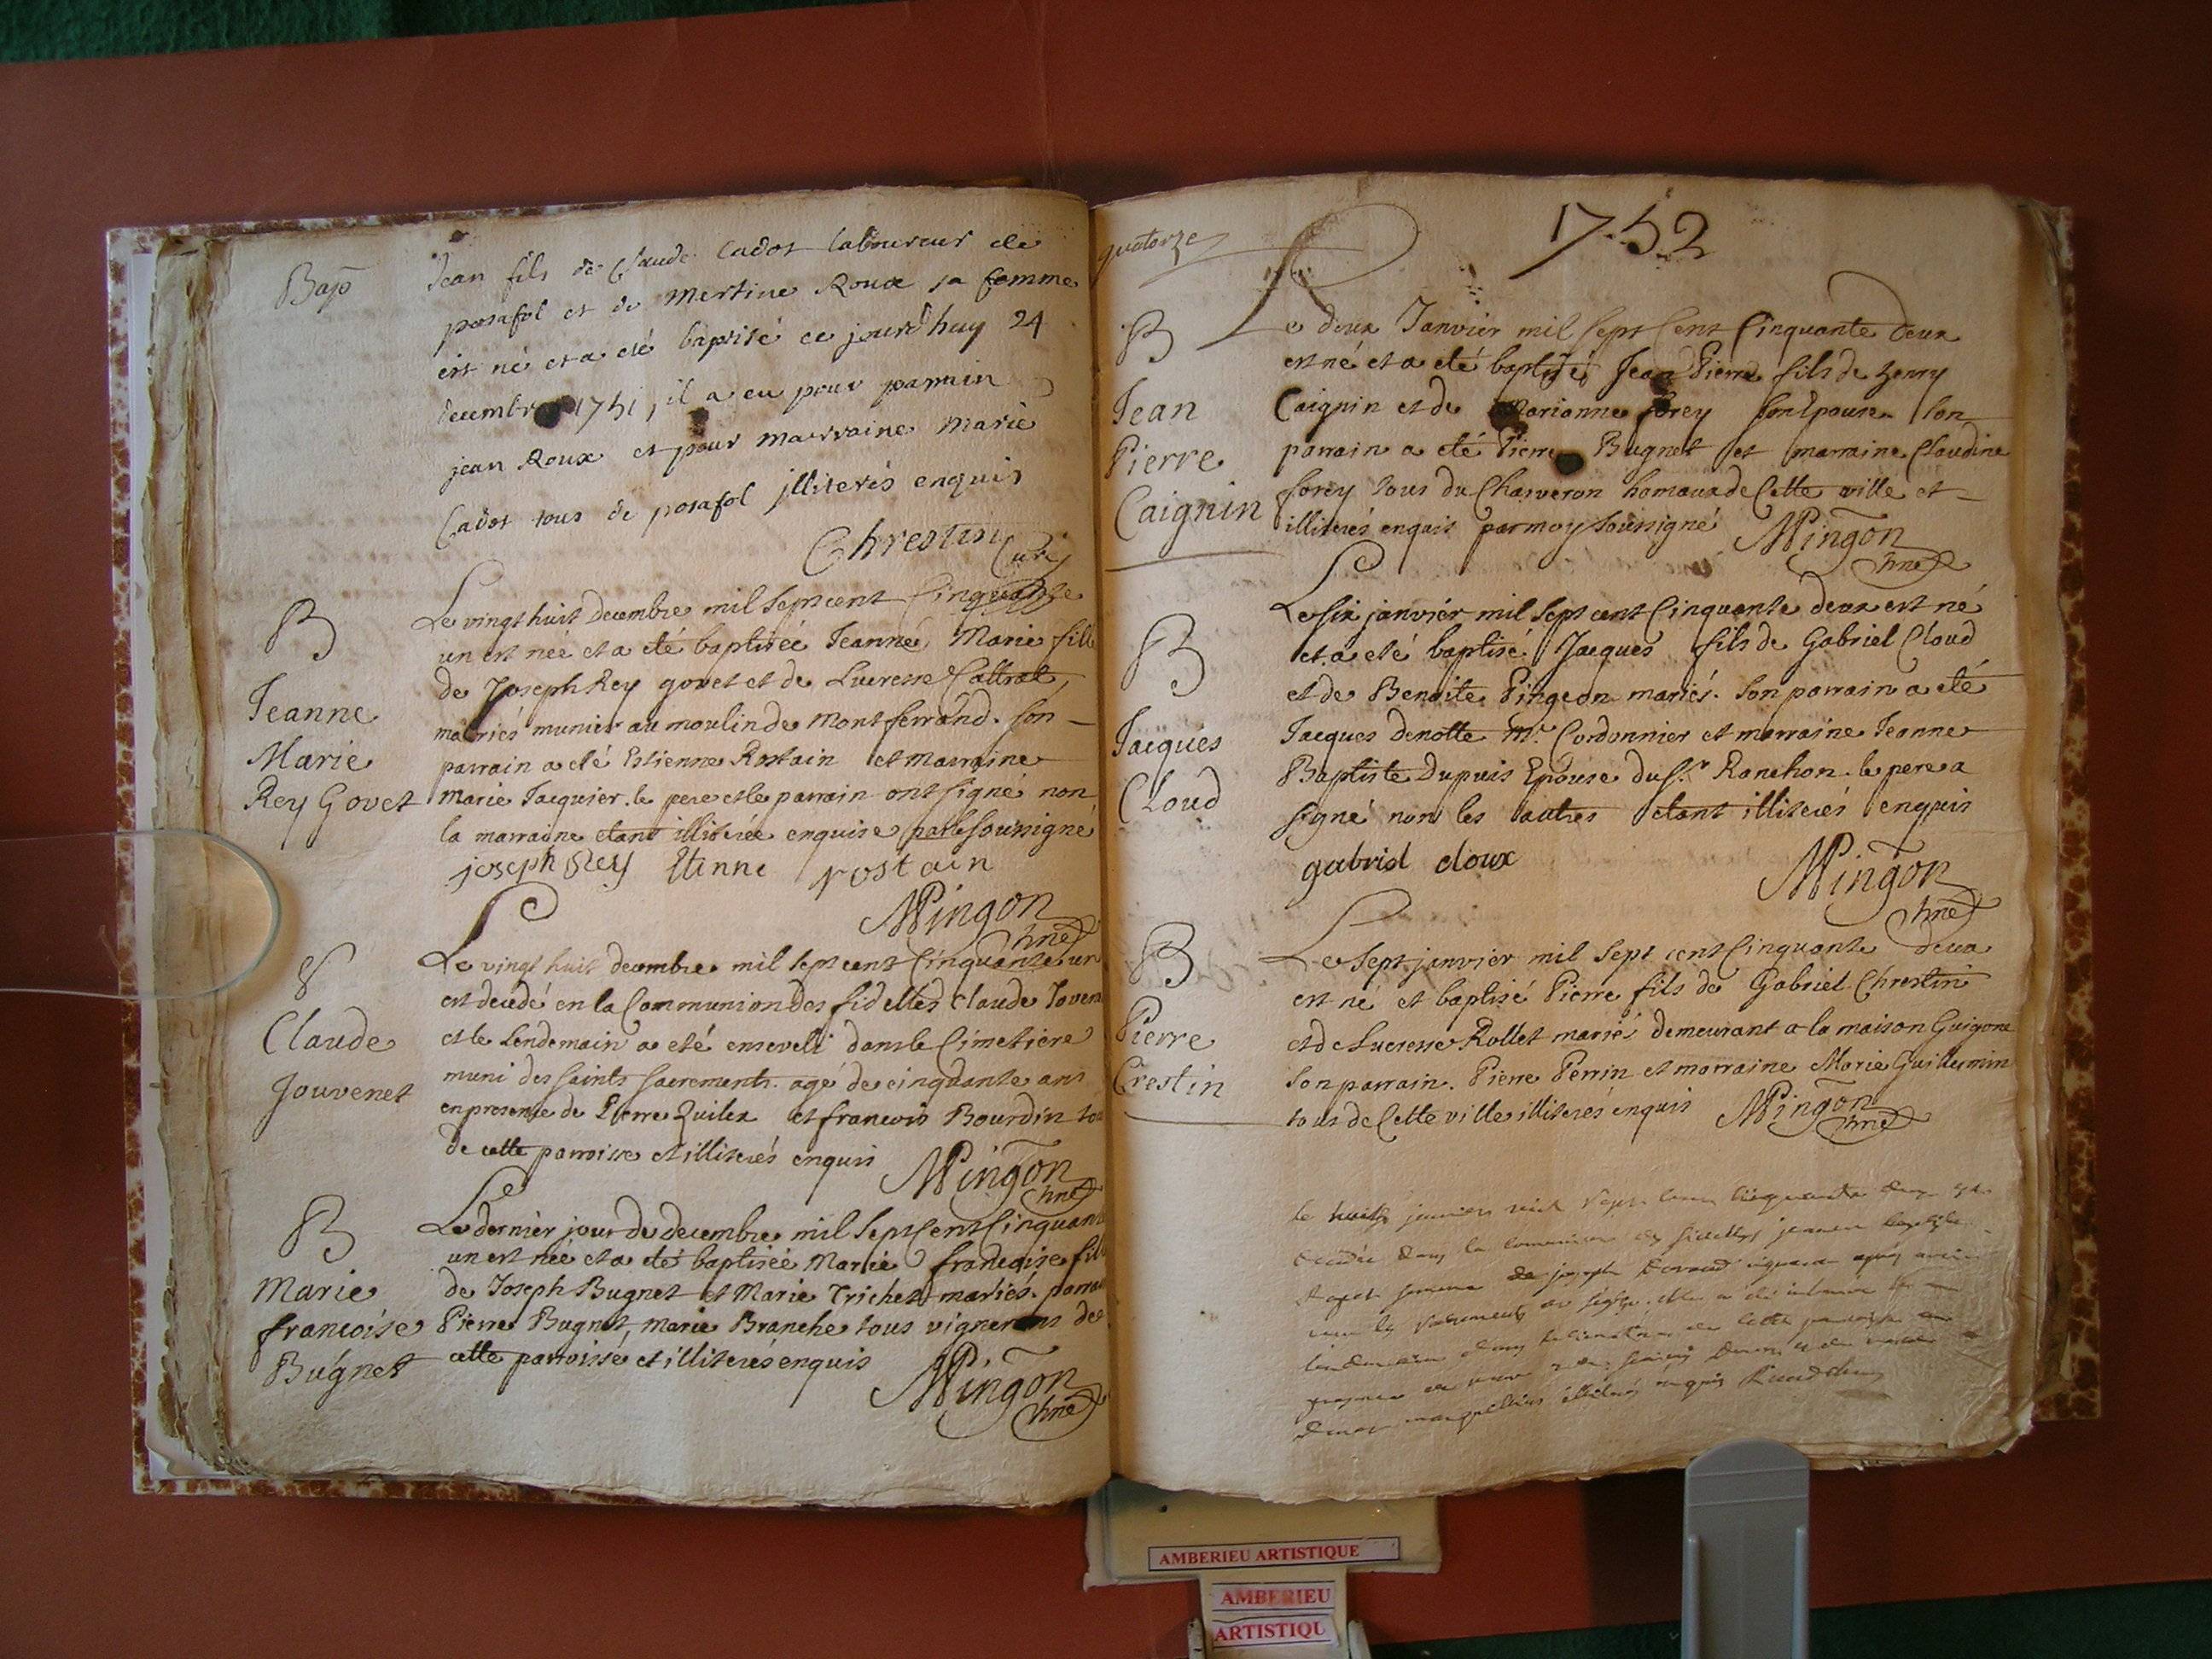 Bap
Jean fils de Claude Cadot laboureur de
posafol et de Mertine Roux sa femme
est né et a eté baptisé ce jourdhuy 24
decembre 1751, il a eu pour parrain
jean Roux et pour marraine Marie
Cadot tous de posafol jlliterés enquis
Chrestin Curé
B
Jeanne
Marie
Rey Govet
Le vingt huit decembre mil sept cent Cinquante
un est née et a eté baptisée Jeanne Marie fille
de Joseph Rey govet et de Lucresse Cattrat
mariés munier au moulin de Montferrand. son
parrain a eté Estienne Rostain et Marraine
Marie Jacquier. le pere et le parrain ont signé non
la marraine etant illiterée enquise par le soussigné
joseph Rey Etinne rostain
Mingon
B
Claude
Jouvenet
Le vingt huit decembre mil sept cent Cinquante un
est decedé en la Communion des fidelles Claude Joven
et le Lendemain a eté enseveli dans le Cimetiere
muni des saints sacrements. agé de cinquante ans
en presence de Pierre Quilex et francois Bourdin
de cette parroisse et illiterés enquis
Mingon
B
Marie
francoise
Bugnet
Le dernier jour de decembre mil sept Cent Cinquante
un est née et a eté baptisée Marie francoise fille
de Joseph Bugnet et Marie Trichet mariés.
Pierre Bugnet, marie Branche tous vignerons de
cette parroisse et illiterés enquis
Mingon
quatorze
1752
B
Jean
Pierre
Caignin
Le deux Janvier mil sept Cent Cinquante deux
est né et a eté baptisé Jean Pierre fils de henry
Caignin et de Marianne forey son Epouse son
parrain a eté Pierre Bugnet et marraine Claudine
forey tous du Charveron hameaux de Cette ville et
illiterés enquis par moy soussigné Mingon
B
Jacques
Cloud
Le six janvier mil sept cent Cinquante deux est né
et a eté baptisé Jacques fils de Gabriel Cloud
et de Benoite Pingeon mariés. son parrain a eté
Jacques denotte Mr. Cordonnier et marraine Jeanne
Baptiste Dupuis Epouse du Sr. Ranchon. le pere a
signé non les autres etant illiterés enquis
gabriel cloux
Mingon
B
Pierre
Crestin
Le sept janvier mil sept cent Cinquante deux
est né et baptisé Pierre fils de Gabriel Chrestin
et de Lucresse Rollet mariés demeurant a la maison Guigone
son parrain. Pierre Perrin et marraine Marie Guillermin
tous de Cette ville illiterés enquis Mingon
le huit janvier mil sept cent cinquante deux
decedée dans la communion des fidelles jeanne
femme de joseph
les sacrements
lendemain dans le cimetiere de cette paroisse en
illiterés enquis
AMBERIEU ARTISTIQUE
AMBERIEU
ARTISTIQU